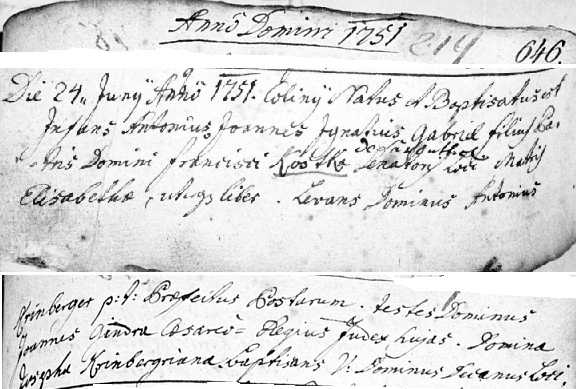 Anno Domini 1751
214
646.
Die 24. Junÿ Anno 1751. Colinÿ Natus et Baptisatus est
Infans Antonius Joannes Ignatius Gabriel filius Pa-
tris Domini francisci Kostka Senatoris loci Matris
Elisabethæ, utrq3 liber. Levans Dominus Antonius
Krinberger p: t: Præfectus Postarum. testes Dominus
Joannes Gindra Cæsareo = Regius Judex hujas. Domina
Josepha Krinbergriana Baptisans V: Dominus Decanus Coli